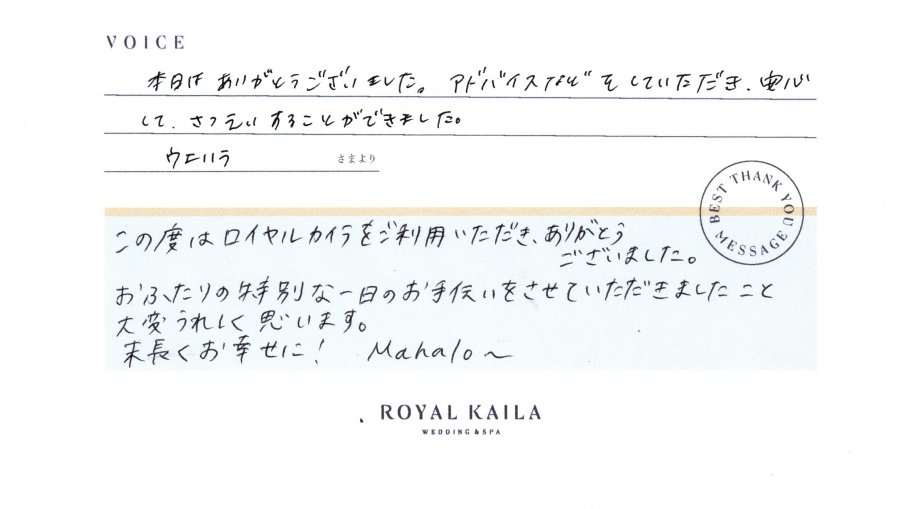 VOICE
本日は ありがとうございました。 アドバイスなど をしていただき、安心
して、さつえいすることができました。
ウエハラ さまより
BEST THANK YOU MESSAGE
この度はロイヤルカイラをご利用いただき、ありがとう
ございました。
おふたりの特別な一日のお手伝いをさせていただきましたこと
大変うれしく思います。
末長くお幸せに! Mahalo~
ROYAL KAILA
WEDDING & SPA